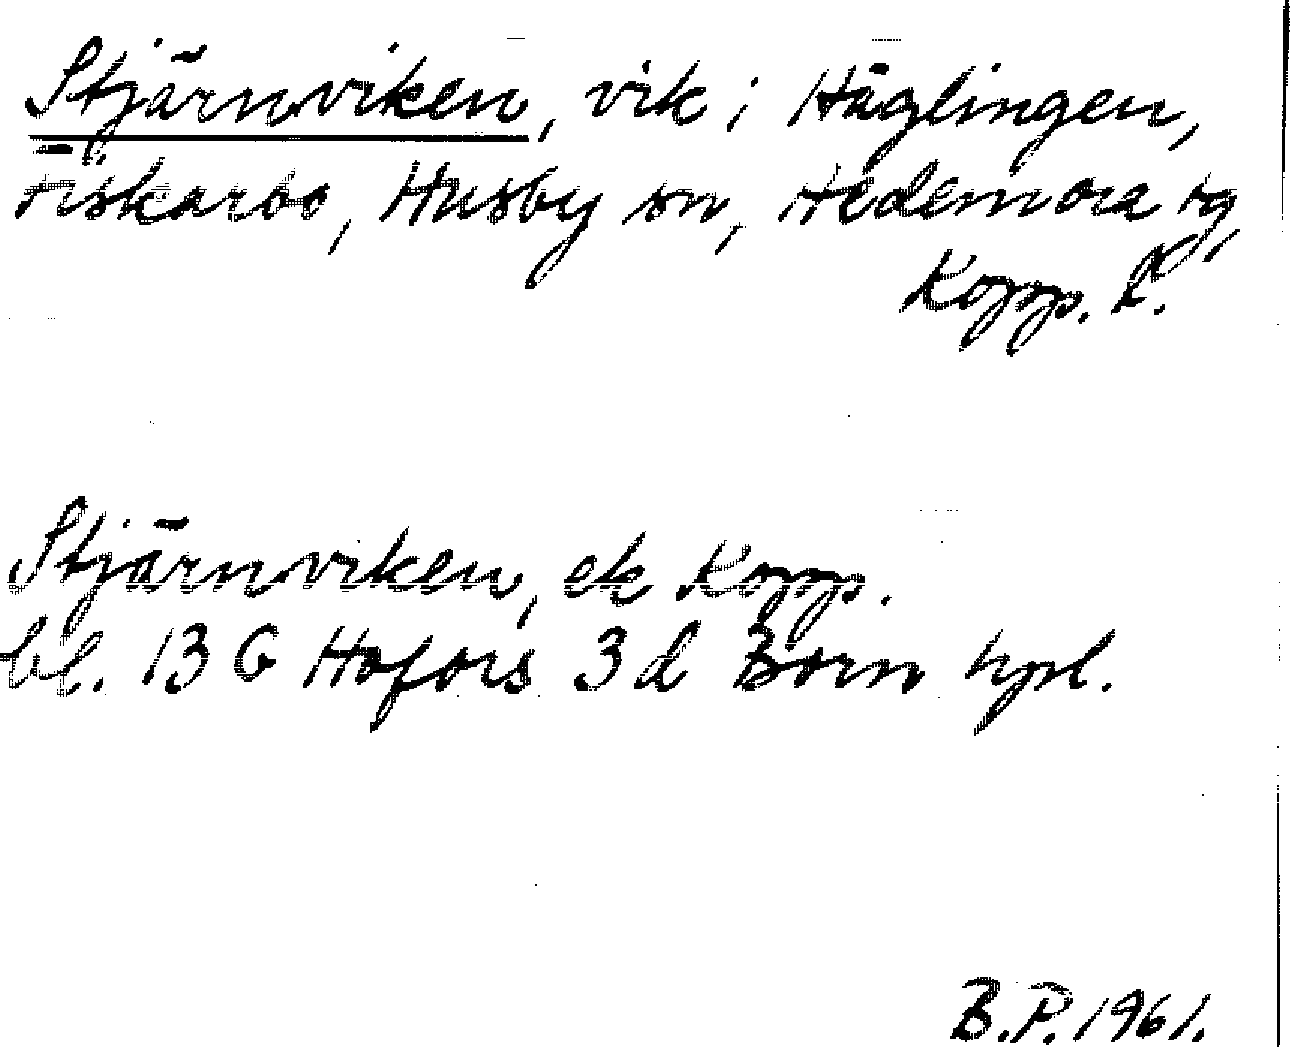 Stjärnviken, vik i Häglingen,
Fiskarbo, Husby sn, Hedemora tg,
Kopp. l.
Stjärnviken, ek Kopp.
bl. 13 G Hofors 3 d Born hpl.
B.P. 1961.